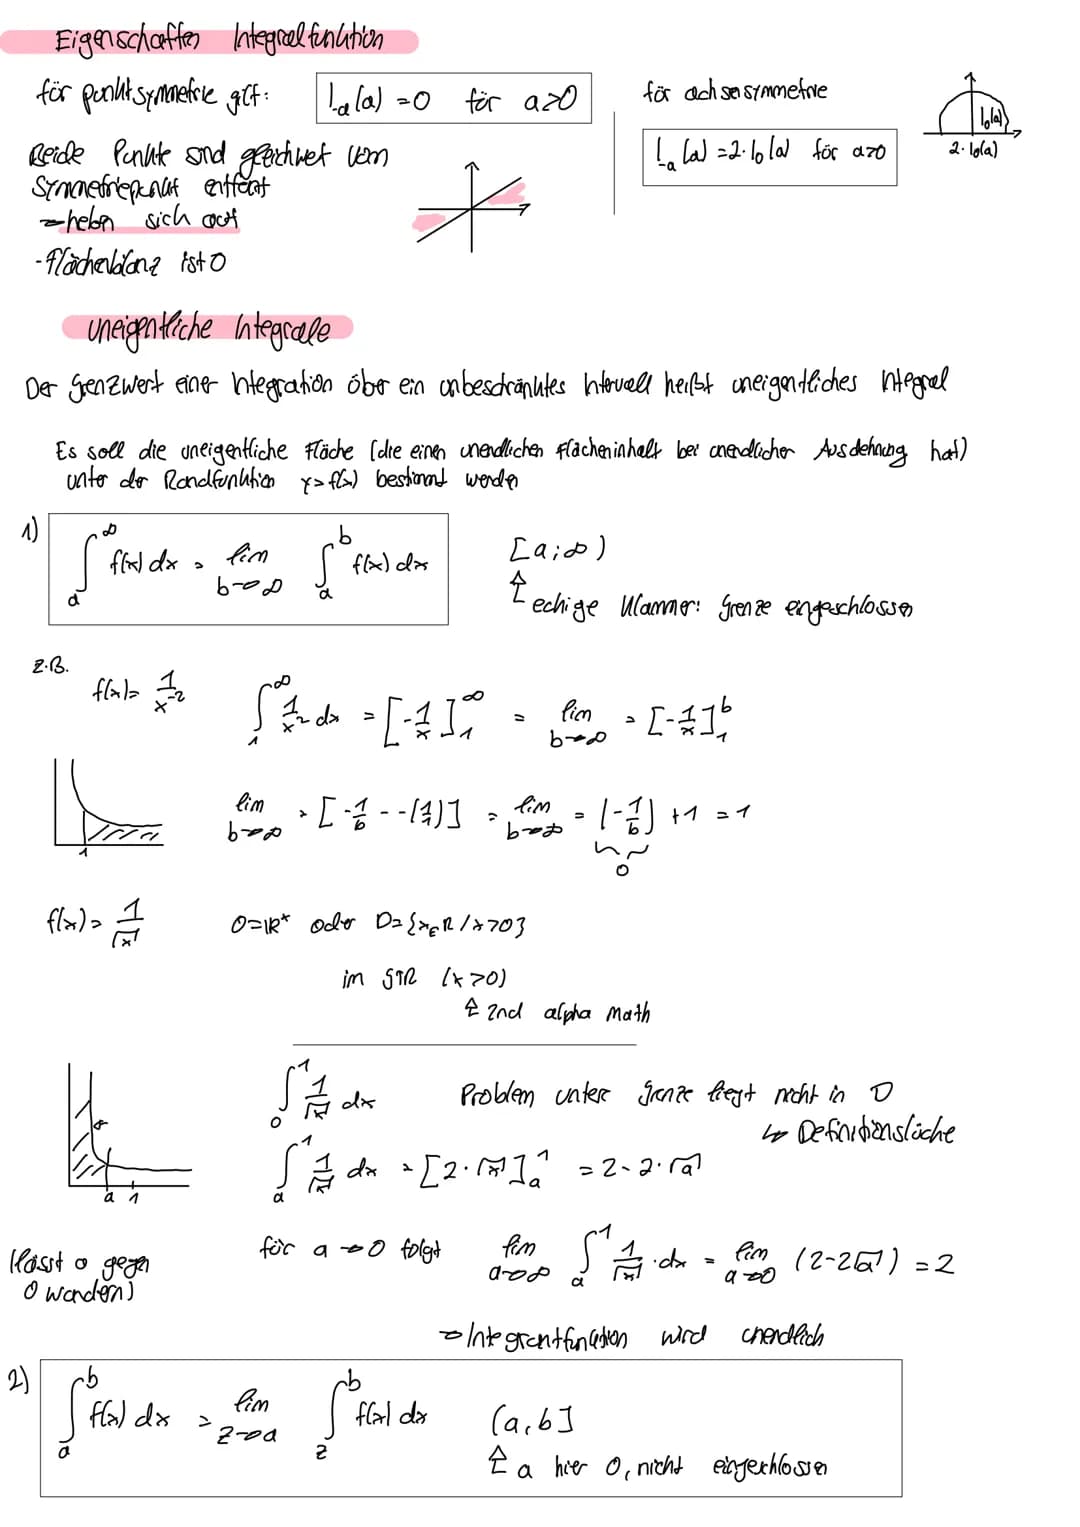 Eigenschaften Integralfunktion
für punktsymmetrie gilt:
I₋ₐ(a) = 0 für a>0
für achsensymmetrie
I₋ₐ(a) = 2·I₀(a) für a>0
I₀(a)
2·I₀(a)
Beide Punkte sind gleichweit vom
Symmetriepunkt entfernt
→ heben sich auf
- Flächenbilanz ist 0
uneigentliche Integrale
Der Grenzwert einer Integration über ein unbeschränktes Intervall heißt uneigentliches Integral
Es soll die uneigentliche Fläche (die einen unendlichen Flächeninhalt bei unendlicher Ausdehnung hat)
unter der Randfunktion y = f(x) bestimmt werden
1) ∫ₐ^∞ f(x) dx = lim b→∞ ∫ₐ^b f(x) dx
[a;∞)
↑ eckige Klammer: Grenze eingeschlossen
z.B.
f(x) = 1/x⁻²
∫₁^∞ 1/x² dx = [-1/x]₁^∞ = lim b→∞ = [-1/x]₁^b
lim b→∞ = [-1/b - -(1/1)] = lim b→∞ = (-1/b) + 1 = 1
0
1
f(x) = 1/√x
D=ℝ* oder D={x∈ℝ/x>0}
im GTR (x>0)
↑ 2nd alpha Math
∫₀^1 1/√x dx Problem untere Grenze liegt nicht in D
↳ Definitionslücke
∫ₐ^1 1/√x dx = [2·√x]ₐ^1 = 2-2·√a
a 1
(lässt a gegen
0 wandern)
für a→0 folgt lim a→∞ ∫ₐ^1 1/√x · dx = lim a→0 (2-2√a) = 2
→ Integrantfunktion wird unendlich
2) ∫ₐ^b f(x) dx = lim z→a ∫_z^b f(x) dx
(a,b]
↑ a hier 0, nicht eingeschlossen